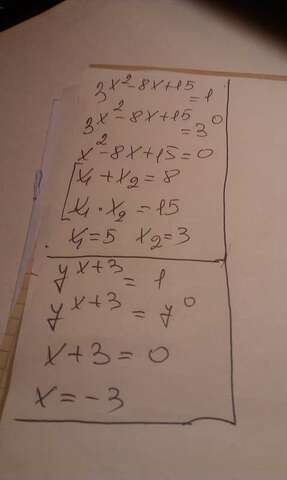 3^x²-8x+15 = 1
3^x²-8x+15 = 3^0
x²-8x+15=0
x₁+x₂=8
x₁·x₂=15
x₁=5 x₂=3
y^x+3 = 1
y^x+3 = y^0
x+3=0
x=-3